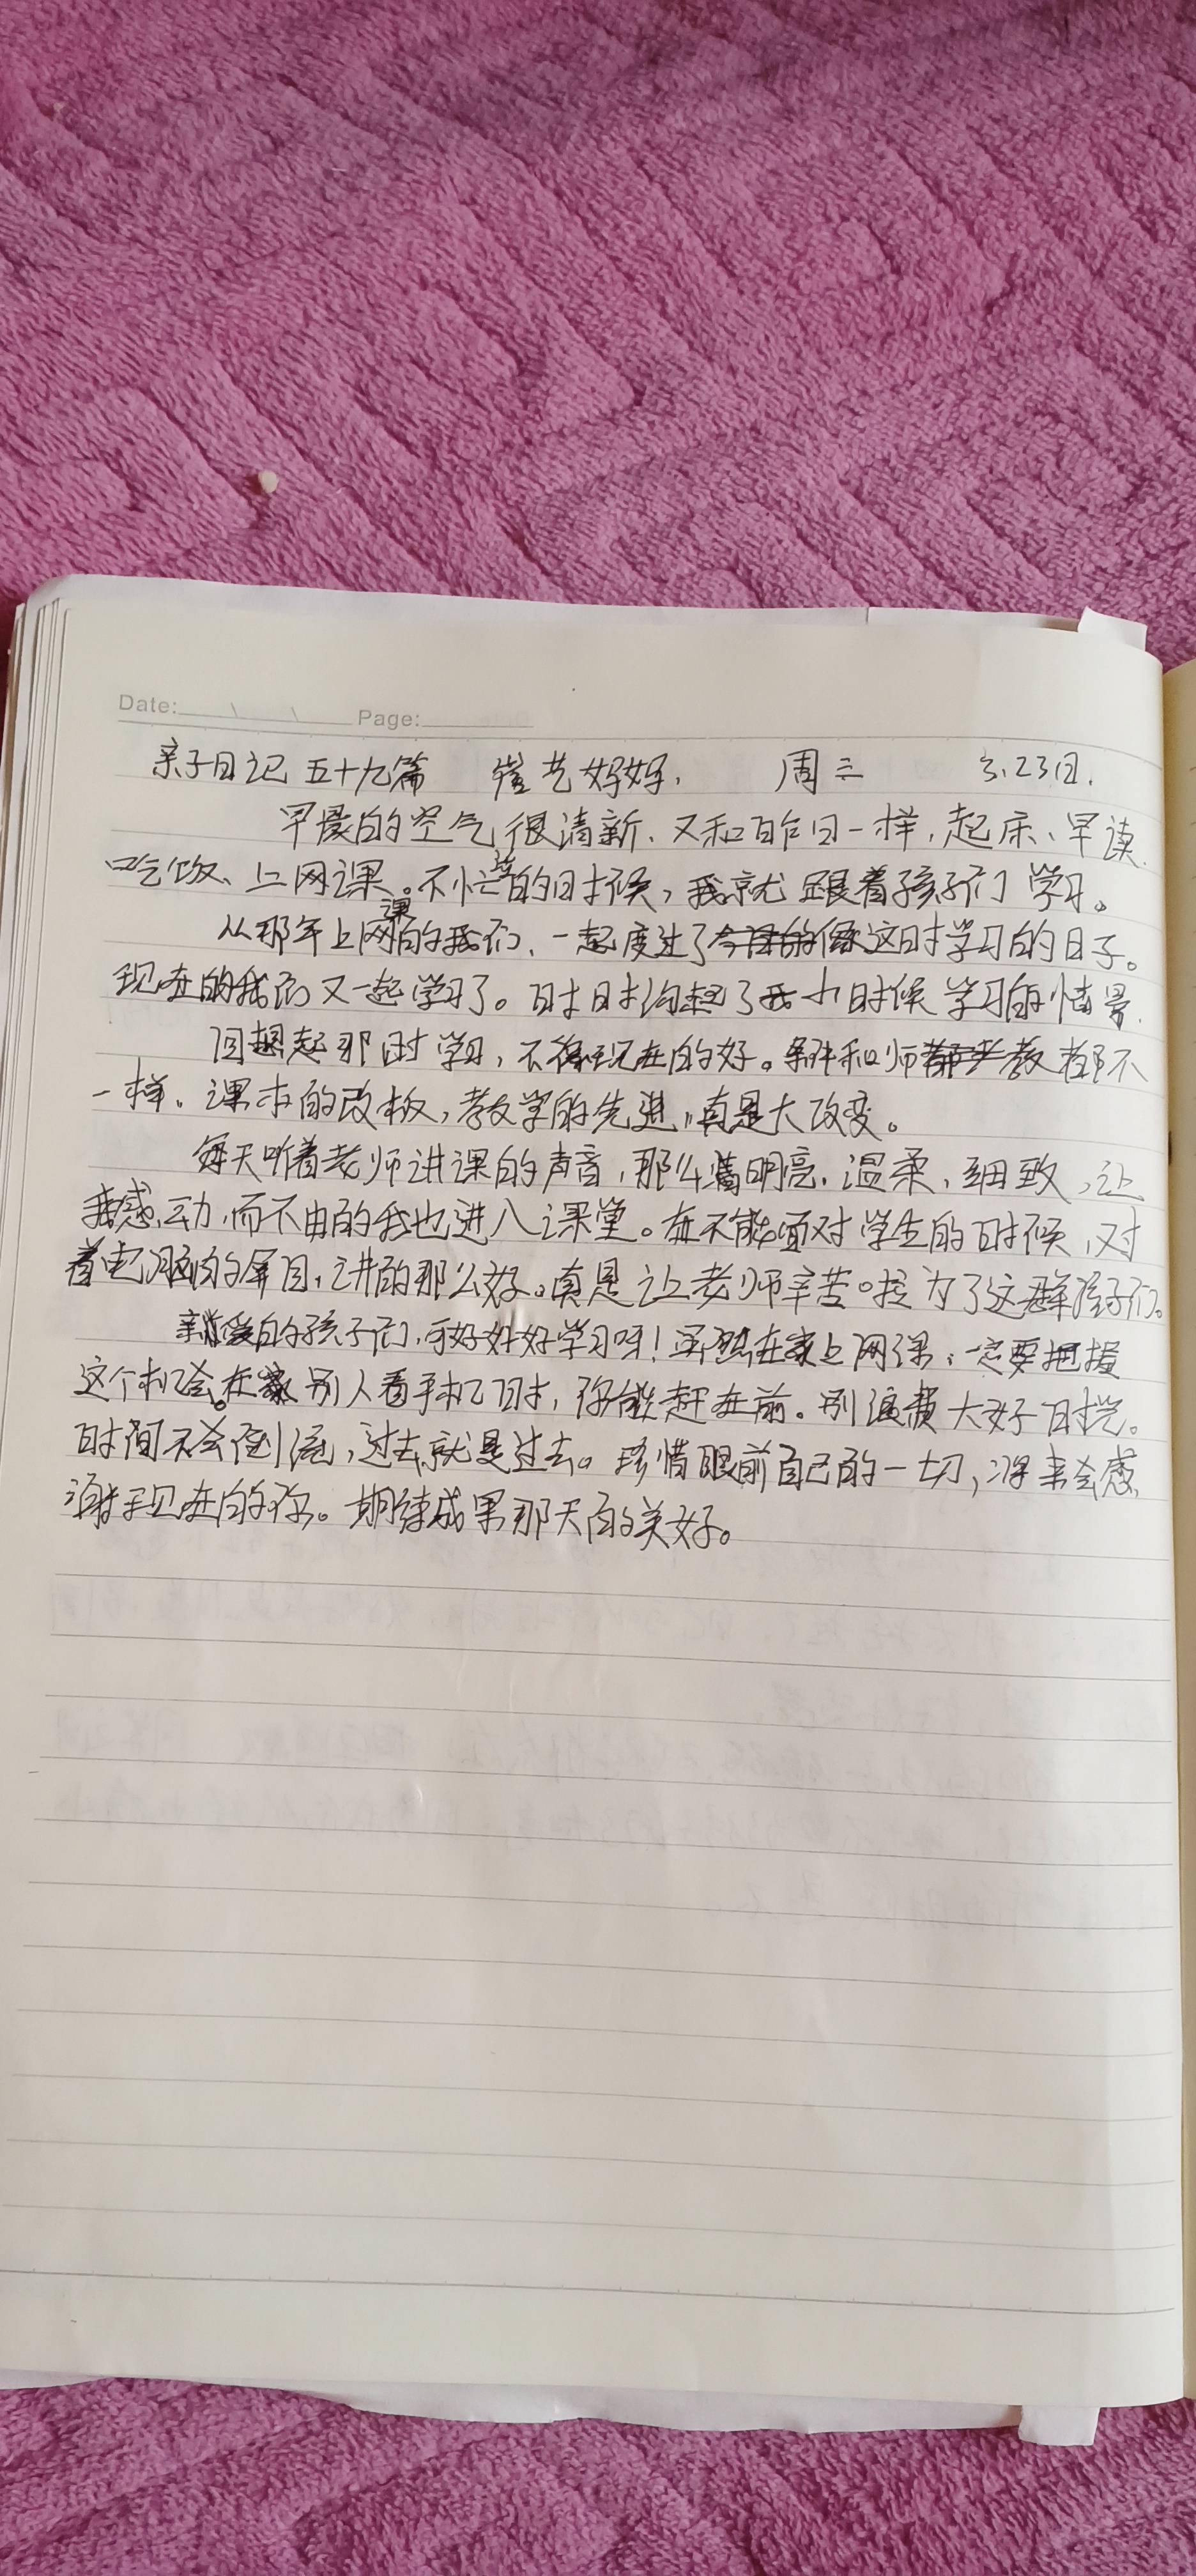 Date: Page:
亲子日记 五十九篇 崔艺妈妈. 周三 3.23日.
早晨的空气很清新、又和昨日一样,起床、早读.
吃饭、上网课。不忙的时候,我就跟着孩子们学习。
从那年上网课的我们、一起度过了这时学习的日子。
现在的我们又一起学习了。时时沟起了我小时候学习的情景.
回想起那时学习,不得现在的好。条件和师教都不
一样。课本的改板,教学的先进,真是大改变。
每天听着老师讲课的声音,那么清明亮.温柔,细致,让
我感动,而不由的我也进入课堂。在不能面对学生的时候,对
着电脑的屏目,讲的那么好。真是让老师辛苦。为了这群孩子们。
亲爱的孩子们,可好好好学习呀!虽然在家上网课,一定要把握
这个机会。在别人看手机时,你能赶在前。别浪费大好时光。
时间不会倒流,过去就是过去。珍惜眼前自己的一切,将来会感
谢现在的你。期待成果那天的美好。